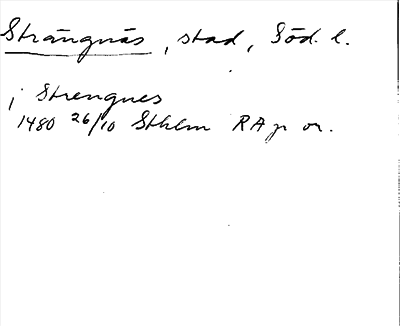 Strängnäs, stad, Söd. l.
i Strengnes
1480 26/10 Sthlm RAp or.